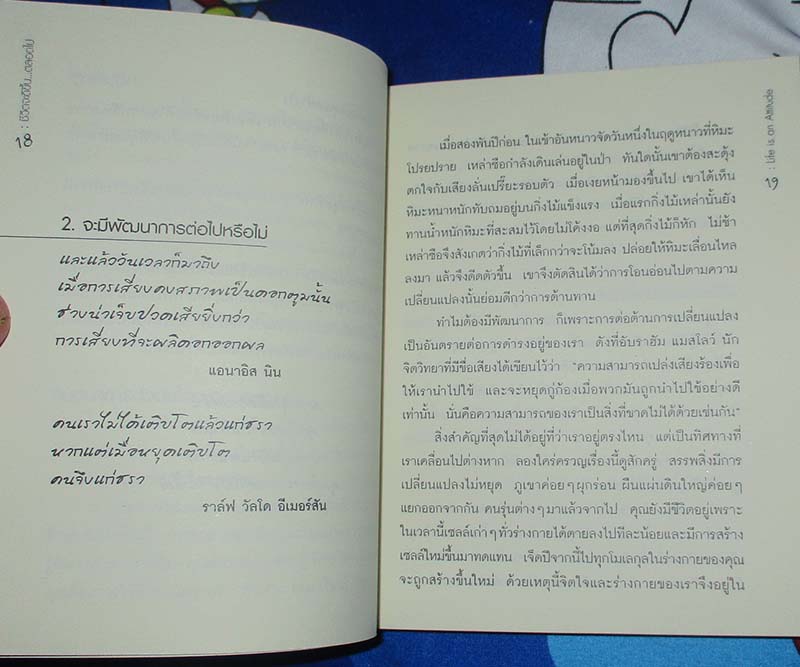 18 : ชีวิตจะดีขึ้น...ตลอดไป
2. จะมีพัฒนาการต่อไปหรือไม่
และแล้ววันเวลาก็มาถึง
เมื่อการเสี่ยงคงสภาพเป็นดอกตูมนั้น
ช่างน่าเจ็บปวดเสียยิ่งกว่า
การเสี่ยงที่จะผลิดอกออกผล
แอนาอิส นิน
คนเราไม่ได้เติบโตแล้วแก่ชรา
หากแต่เมื่อหยุดเติบโต
คนจึงแก่ชรา
ราล์ฟ วัลโด อีเมอร์สัน
19 : Life is an Attitude
เมื่อสองพันปีก่อน ในเช้าอันหนาวจัดวันหนึ่งในฤดูหนาวที่หิมะ
โปรยปราย เหล่าซือกำลังเดินเล่นอยู่ในป่า ทันใดนั้นเขาต้องสะดุ้ง
ตกใจกับเสียงลั่นเปรี๊ยะรอบตัว เมื่อเงยหน้ามองขึ้นไป เขาได้เห็น
หิมะหนาหนักทับถมอยู่บนกิ่งไม้แข็งแรง เมื่อแรกกิ่งไม้เหล่านั้นยัง
ทานน้ำหนักหิมะที่สะสมไว้โดยไม่โค้งงอ แต่ที่สุดกิ่งไม้ก็หัก ไม่ช้า
เหล่าซือจึงสังเกตว่ากิ่งไม้ที่เล็กกว่าจะโน้มลง ปล่อยให้หิมะเลื่อนไหล
ลงมา แล้วจึงดีดตัวขึ้น เขาจึงตัดสินได้ว่าการโอนอ่อนไปตามความ
เปลี่ยนแปลงนั้นย่อมดีกว่าการต้านทาน
ทำไมต้องมีพัฒนาการ ก็เพราะการต่อต้านการเปลี่ยนแปลง
เป็นอันตรายต่อการดำรงอยู่ของเรา ดังที่อับราฮัม แมสโลว์ นัก
จิตวิทยาที่มีชื่อเสียงได้เขียนไว้ว่า "ความสามารถเปล่งเสียงร้องเพื่อ
ให้เรานำไปใช้ และจะหยุดกู่ก้องเมื่อพวกมันถูกนำไปใช้อย่างดี
เท่านั้น นั่นคือความสามารถของเราเป็นสิ่งที่ขาดไม่ได้ด้วยเช่นกัน"
สิ่งสำคัญที่สุดไม่ได้อยู่ที่ว่าเราอยู่ตรงไหน แต่เป็นทิศทางที่
เราเคลื่อนไปต่างหาก ลองใคร่ครวญเรื่องนี้ดูสักครู่ สรรพสิ่งมีการ
เปลี่ยนแปลงไม่หยุด ภูเขาค่อยๆ ผุกร่อน ผืนแผ่นดินใหญ่ค่อยๆ
แยกออกจากกัน คนรุ่นต่างๆ มาแล้วจากไป คุณยังมีชีวิตอยู่เพราะ
ในเวลานี้เซลล์เก่าๆ ทั่วร่างกายได้ตายลงไปทีละน้อยและมีการสร้าง
เซลล์ใหม่ขึ้นมาทดแทน เจ็ดปีจากนี้ไปทุกโมเลกุลในร่างกายของคุณ
จะถูกสร้างขึ้นใหม่ ด้วยเหตุนี้จิตใจและร่างกายของเราจึงอยู่ใน